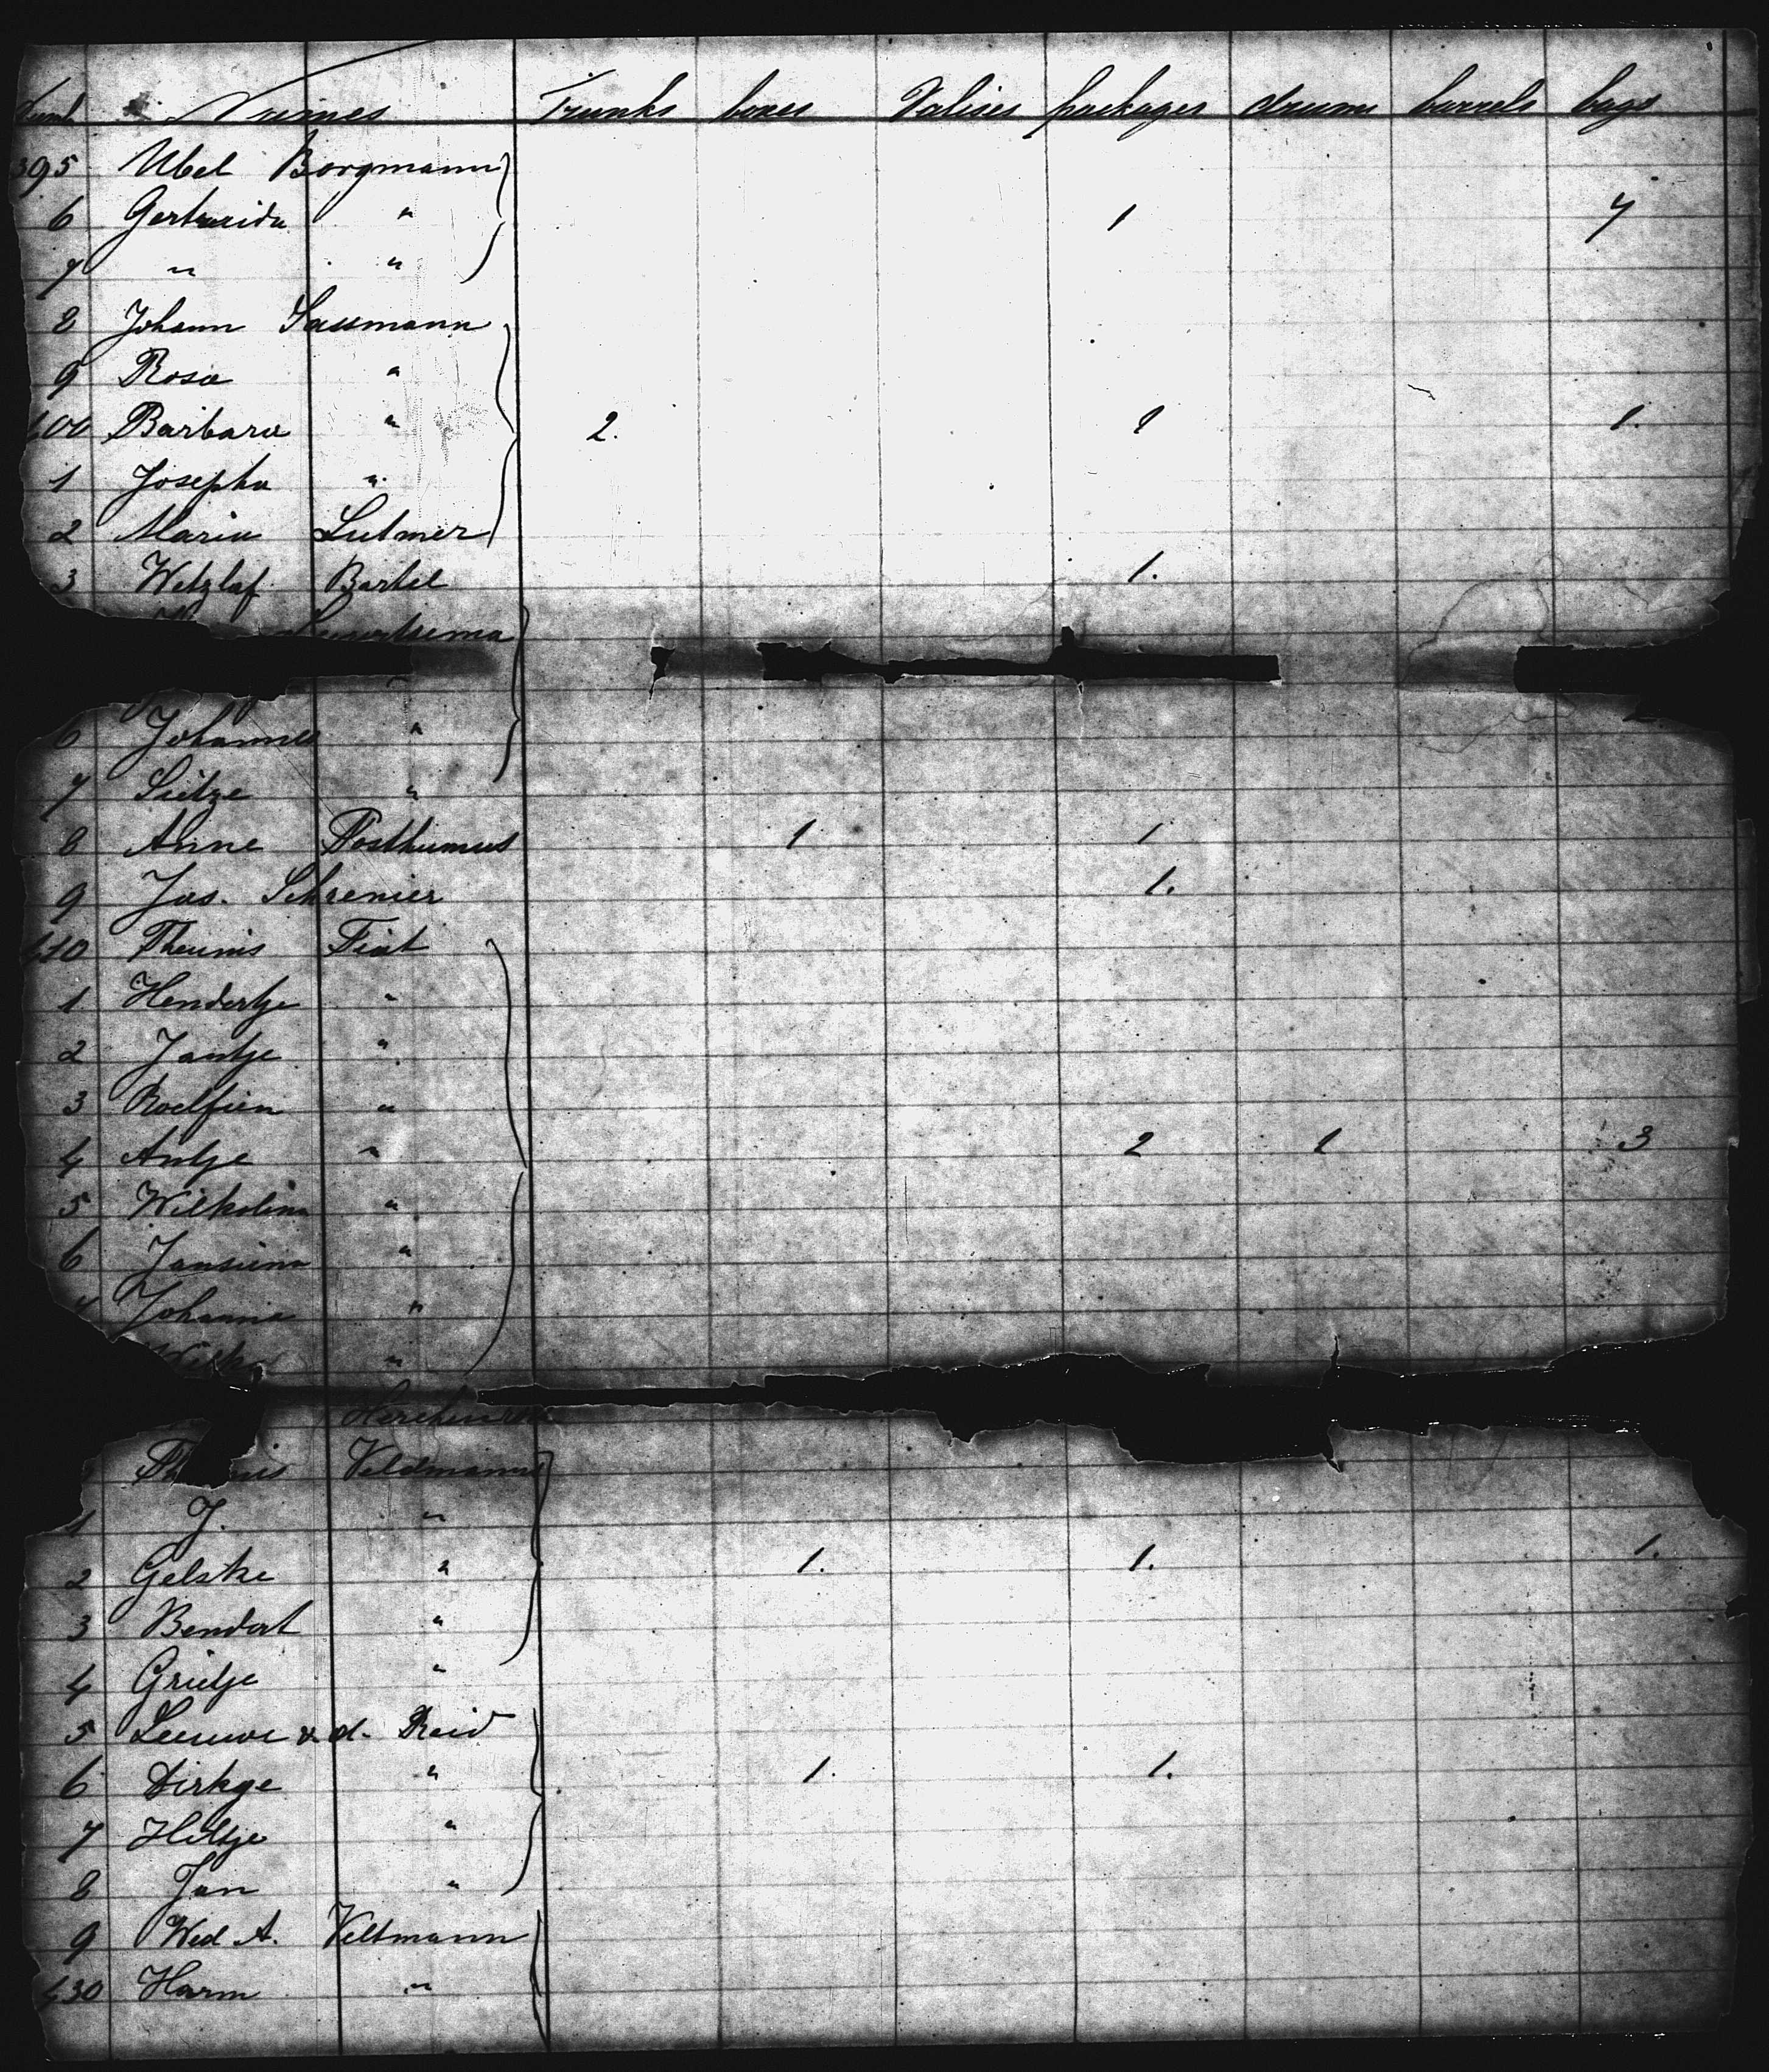 Numb Names Trunks boxes Valises packages drums barrels bags
395 Ubel Borgmann
6 Gertruida " 1 7
7 " "
8 Johann Sassmann
9 Rosa "
400 Barbara " 2. 1 1.
1 Josepha "
2 Maria Lutmer
3 Wetzlaf Bartel 1.
6 Johannes "
7 Sietze "
8 Anne Posthumus 1 1.
9 Jos. Schrenier 1.
410 Theunis Fiat
1 Hendertje "
2 Jantje "
3 Roelfien "
4 Antje " 2 1 3
5 Wilkelina "
6 Jansiena "
7 Johanna "
"
Veldmann
1 J. "
2 Gelske " 1. 1. 1.
3 Bendert "
4 Grietje "
5 Leeuwe v. d. Raid
6 Dirkge " 1. 1.
7 Hiltje "
8 Jan "
9 Wed A. Veltmann
430 Harm "